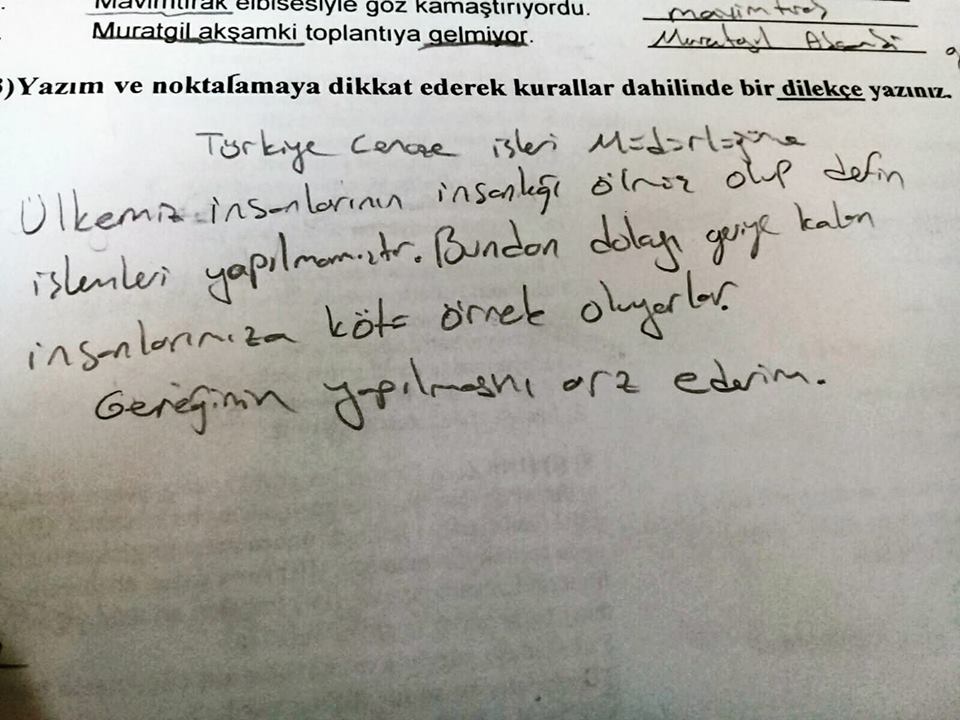 Mavimtırak elbisesiyle göz kamaştırıyordu. mavimtıraş
Muratgil akşamki toplantıya gelmiyor. Muratgil
3)Yazım ve noktalamaya dikkat ederek kurallar dahilinde bir dilekçe yazınız.
Türkiye Cenaze işleri Müdürlüğüne
Ülkemiz insanlarının insanlığı ölmüş olup defin
işlemleri yapılmamıştır. Bundan dolayı geriye kalan
insanlarımıza kötü örnek oluyorlar.
Gereğinin yapılmasını arz ederim.